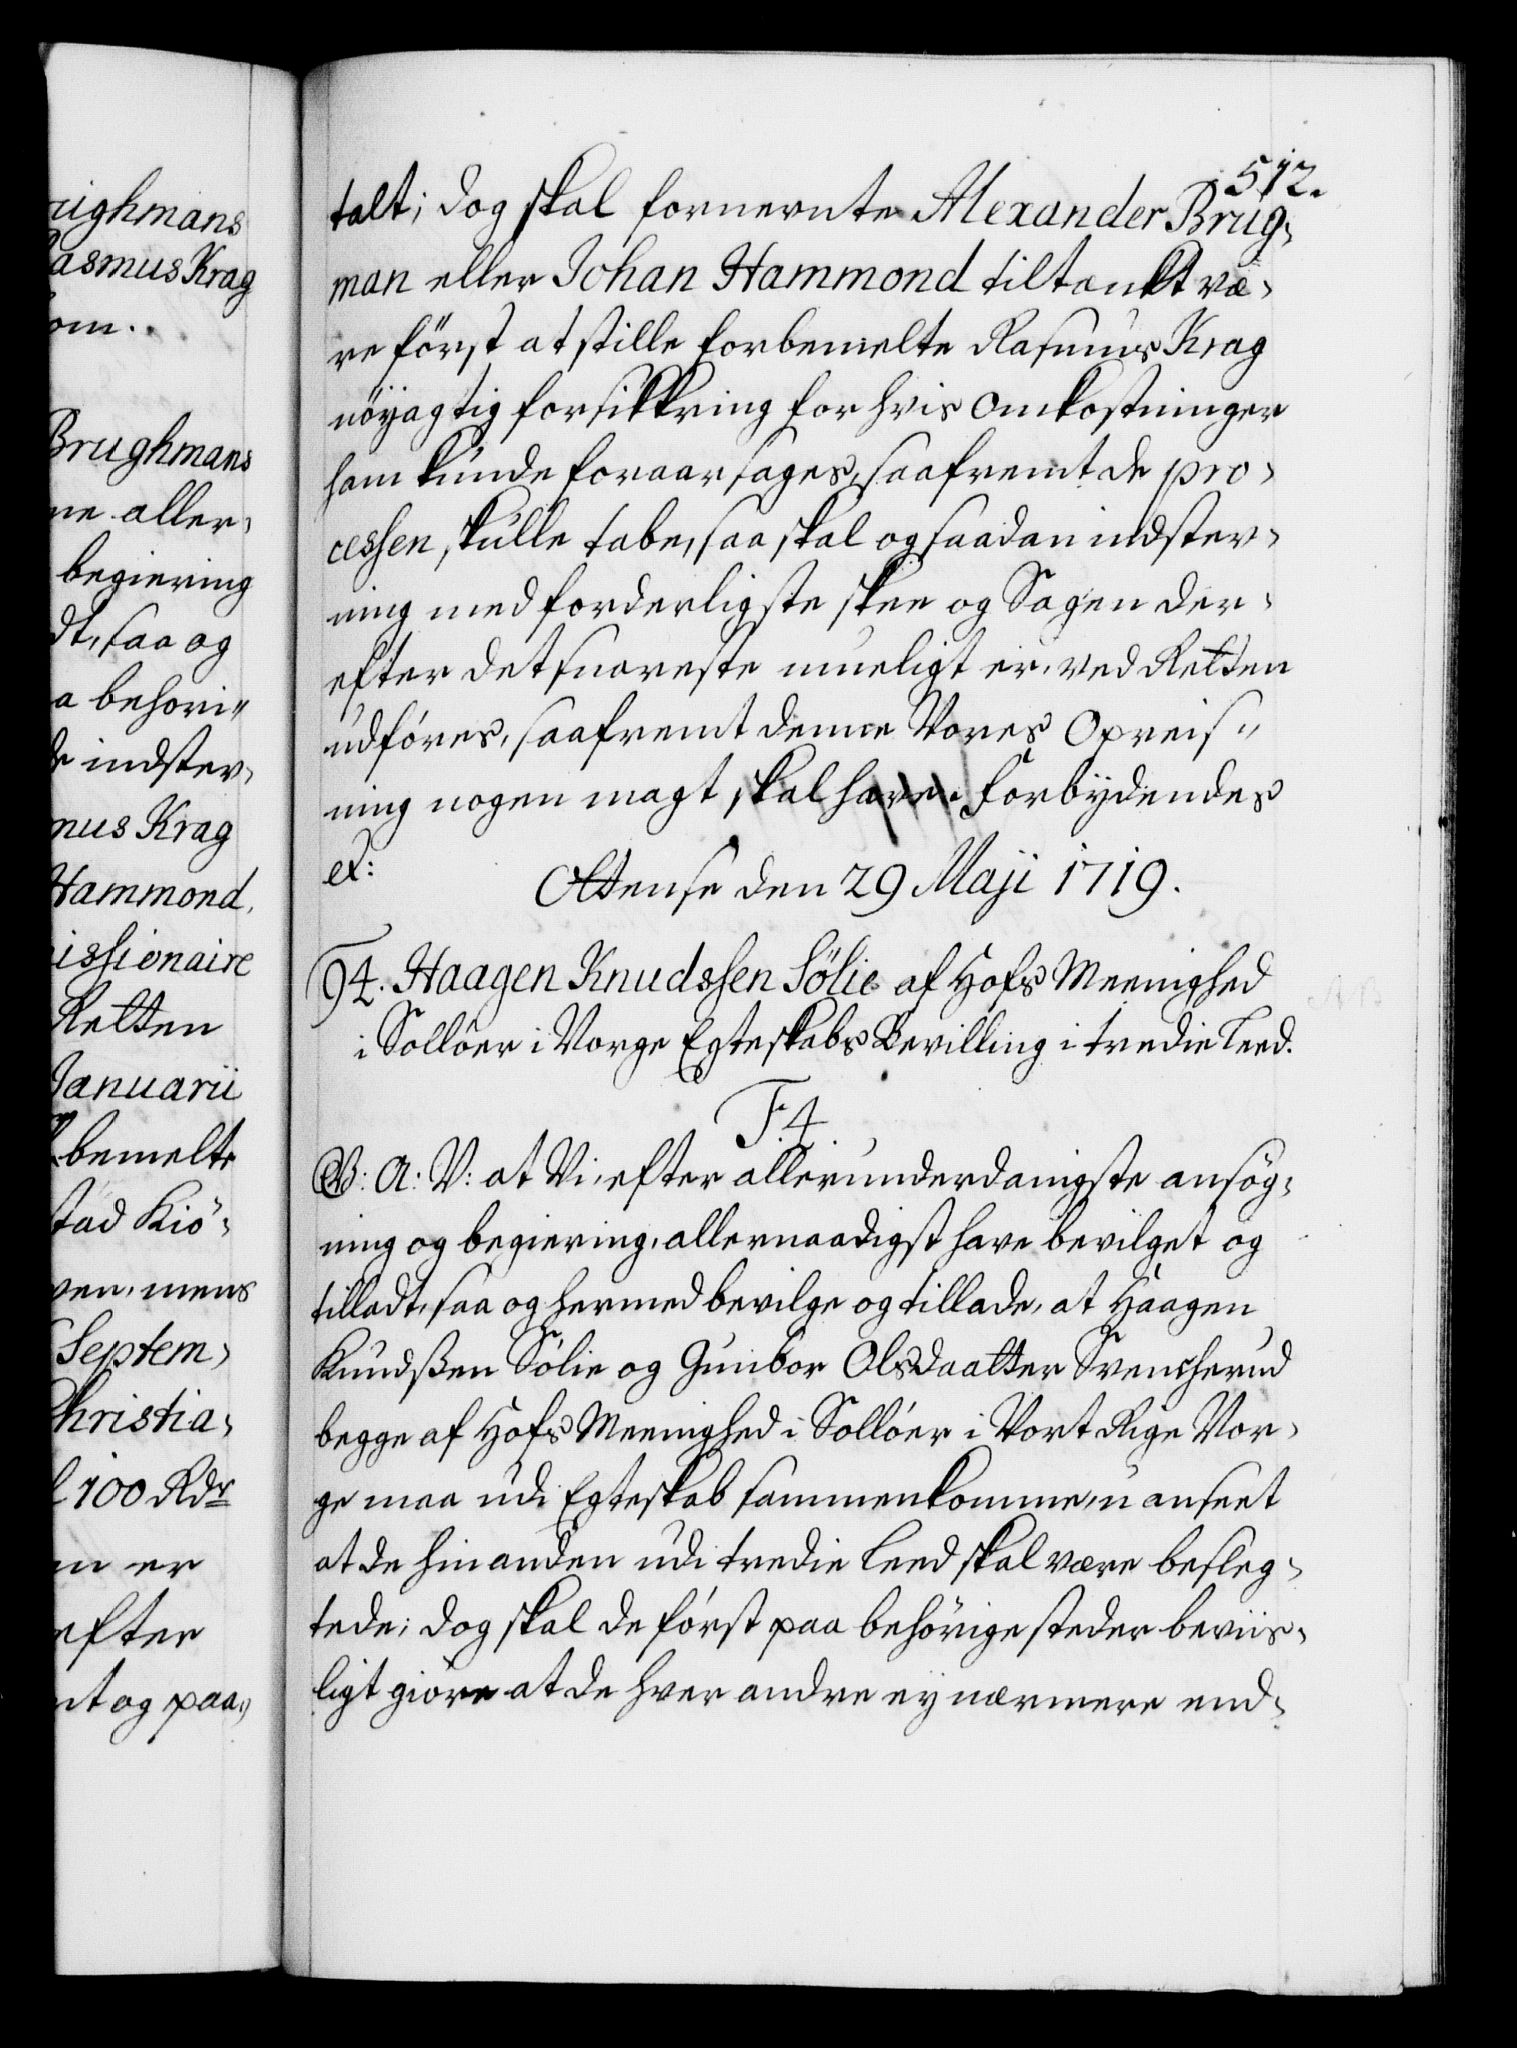 righmans
Rasmus Krag
om.
Brughmans
ne aller,
begiering
dt, saa og
a behöri"
de indstev,
mus Krag
Hammond,
missionaire
Retten
Januarii
bemelte
stad Kiö,
ven, mens
Septem,
Christia,
l 100 Rdr
en er
efter
nt og paa,,
512.
talt; dog skal fornevnte Alexander Brug,
man eller Johan Hammond tiltenkt væ,
re först at stille forbemelte Rasmus Krag
nöyagtig forsikkring for hvis Omkostninger
ham kunde foraarsages, saafremt de pro,
cessen skulle tabe, saa skal og saadan indstev,
ning med forderligste skee og Sagen der,
efter det snareste mueligt er, ved Retten
udföres, saafremt denne Vores Opreis,,
ning nogen magt skal have. Forbydendes
et:
Ottense den 29 Maji 1719.
94. Haagen Knudssen Sölie af Hofs Meenighed
i Sollöer i Norge Egteskabs Bevilling i tredie Leed.
F. 4
G: A: V: at Vi, efter allerunderdanigste ansög,
ning og begiering, allernaadigst have bevilget og
tilladt, saa og hermed bevilge og tillade, at Haagen
Knudsßen Sölie og Gunbor Olsdaatter Svencherud
begge af Hofs Meenighed i Sollöer i Vort Rige Nor,
ge maa udi Egteskab sammenkomme, uanseet
at de hinanden udi tredie Leed skal være besleg,
tede; dog skal de först paa behörige steder beviis,
ligt giöre at de hver andre ey nærmere end,